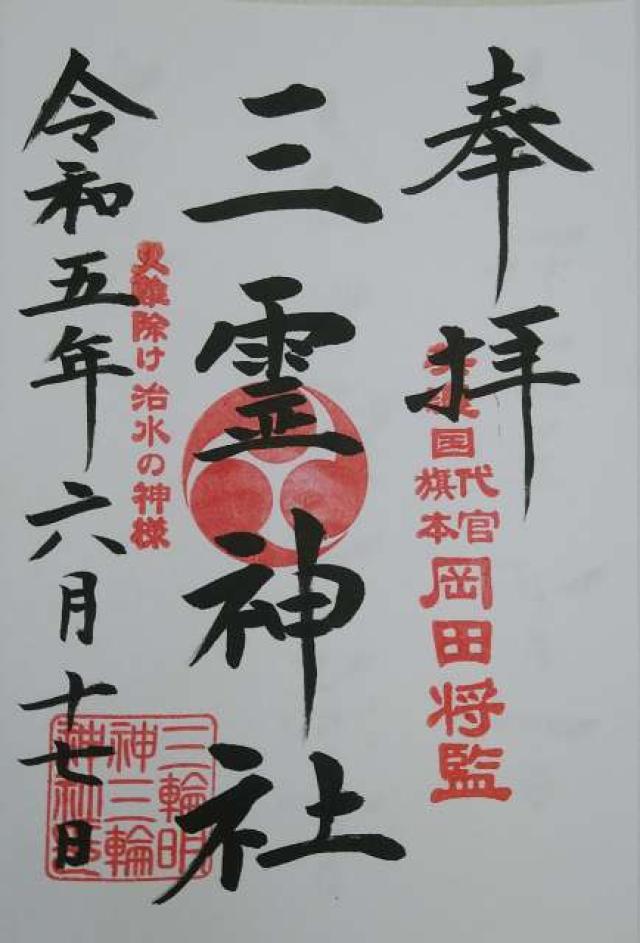 奉拝
美濃国
代官
旗本
岡田将監
三霊神社
火難除け 治水の神様
令和五年六月十七日
三輪明
神三輪
神社